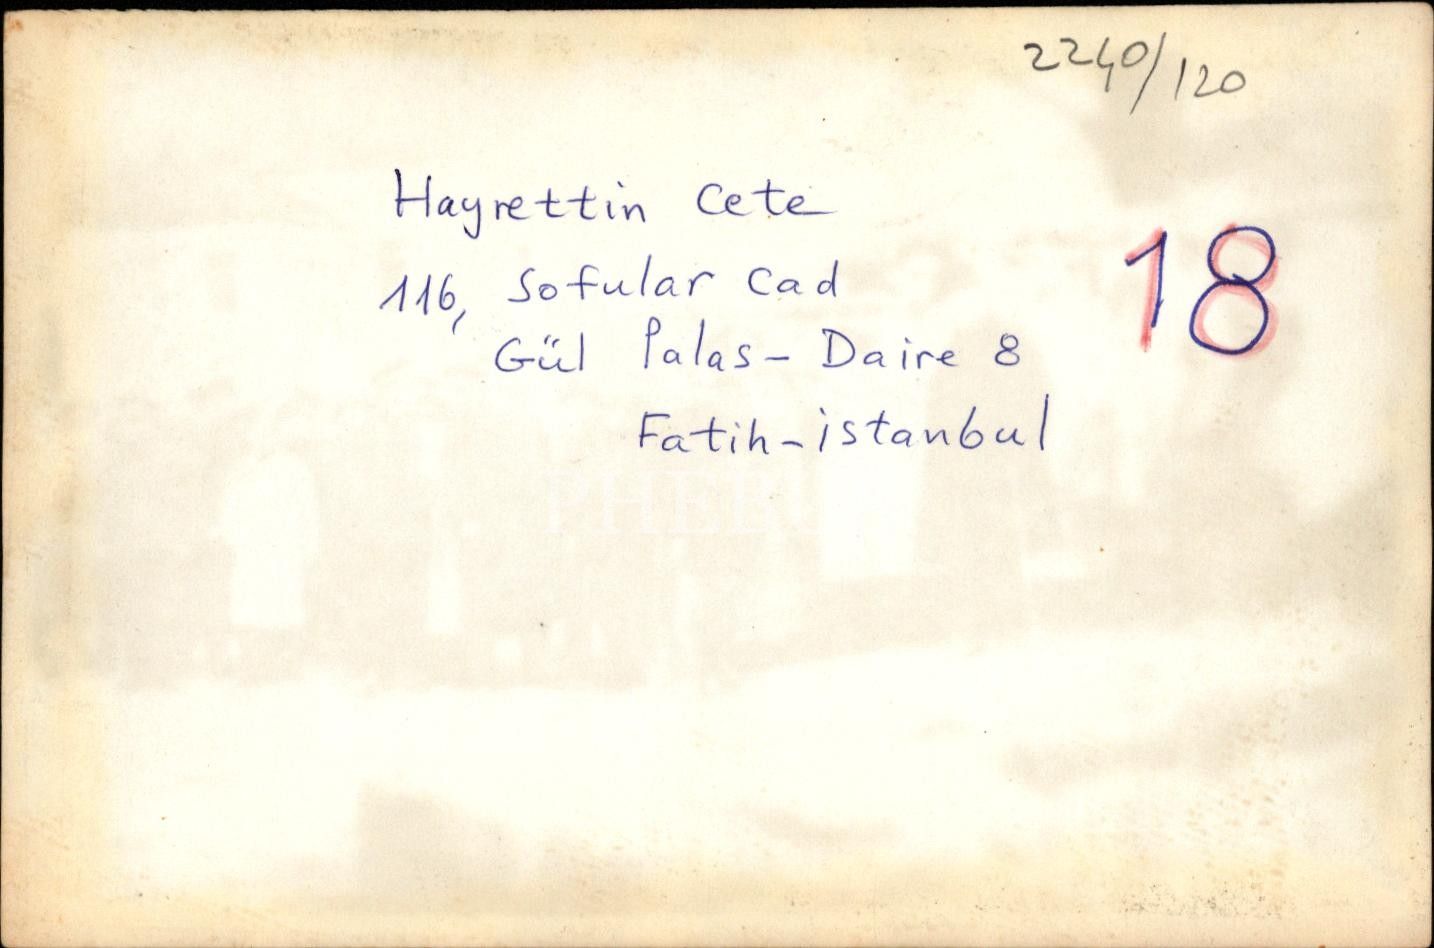 2240/120
Hayrettin Cete
18
116, Sofular Cad
Gül Palas - Daire 8
Fatih - istanbul
PHEBUS